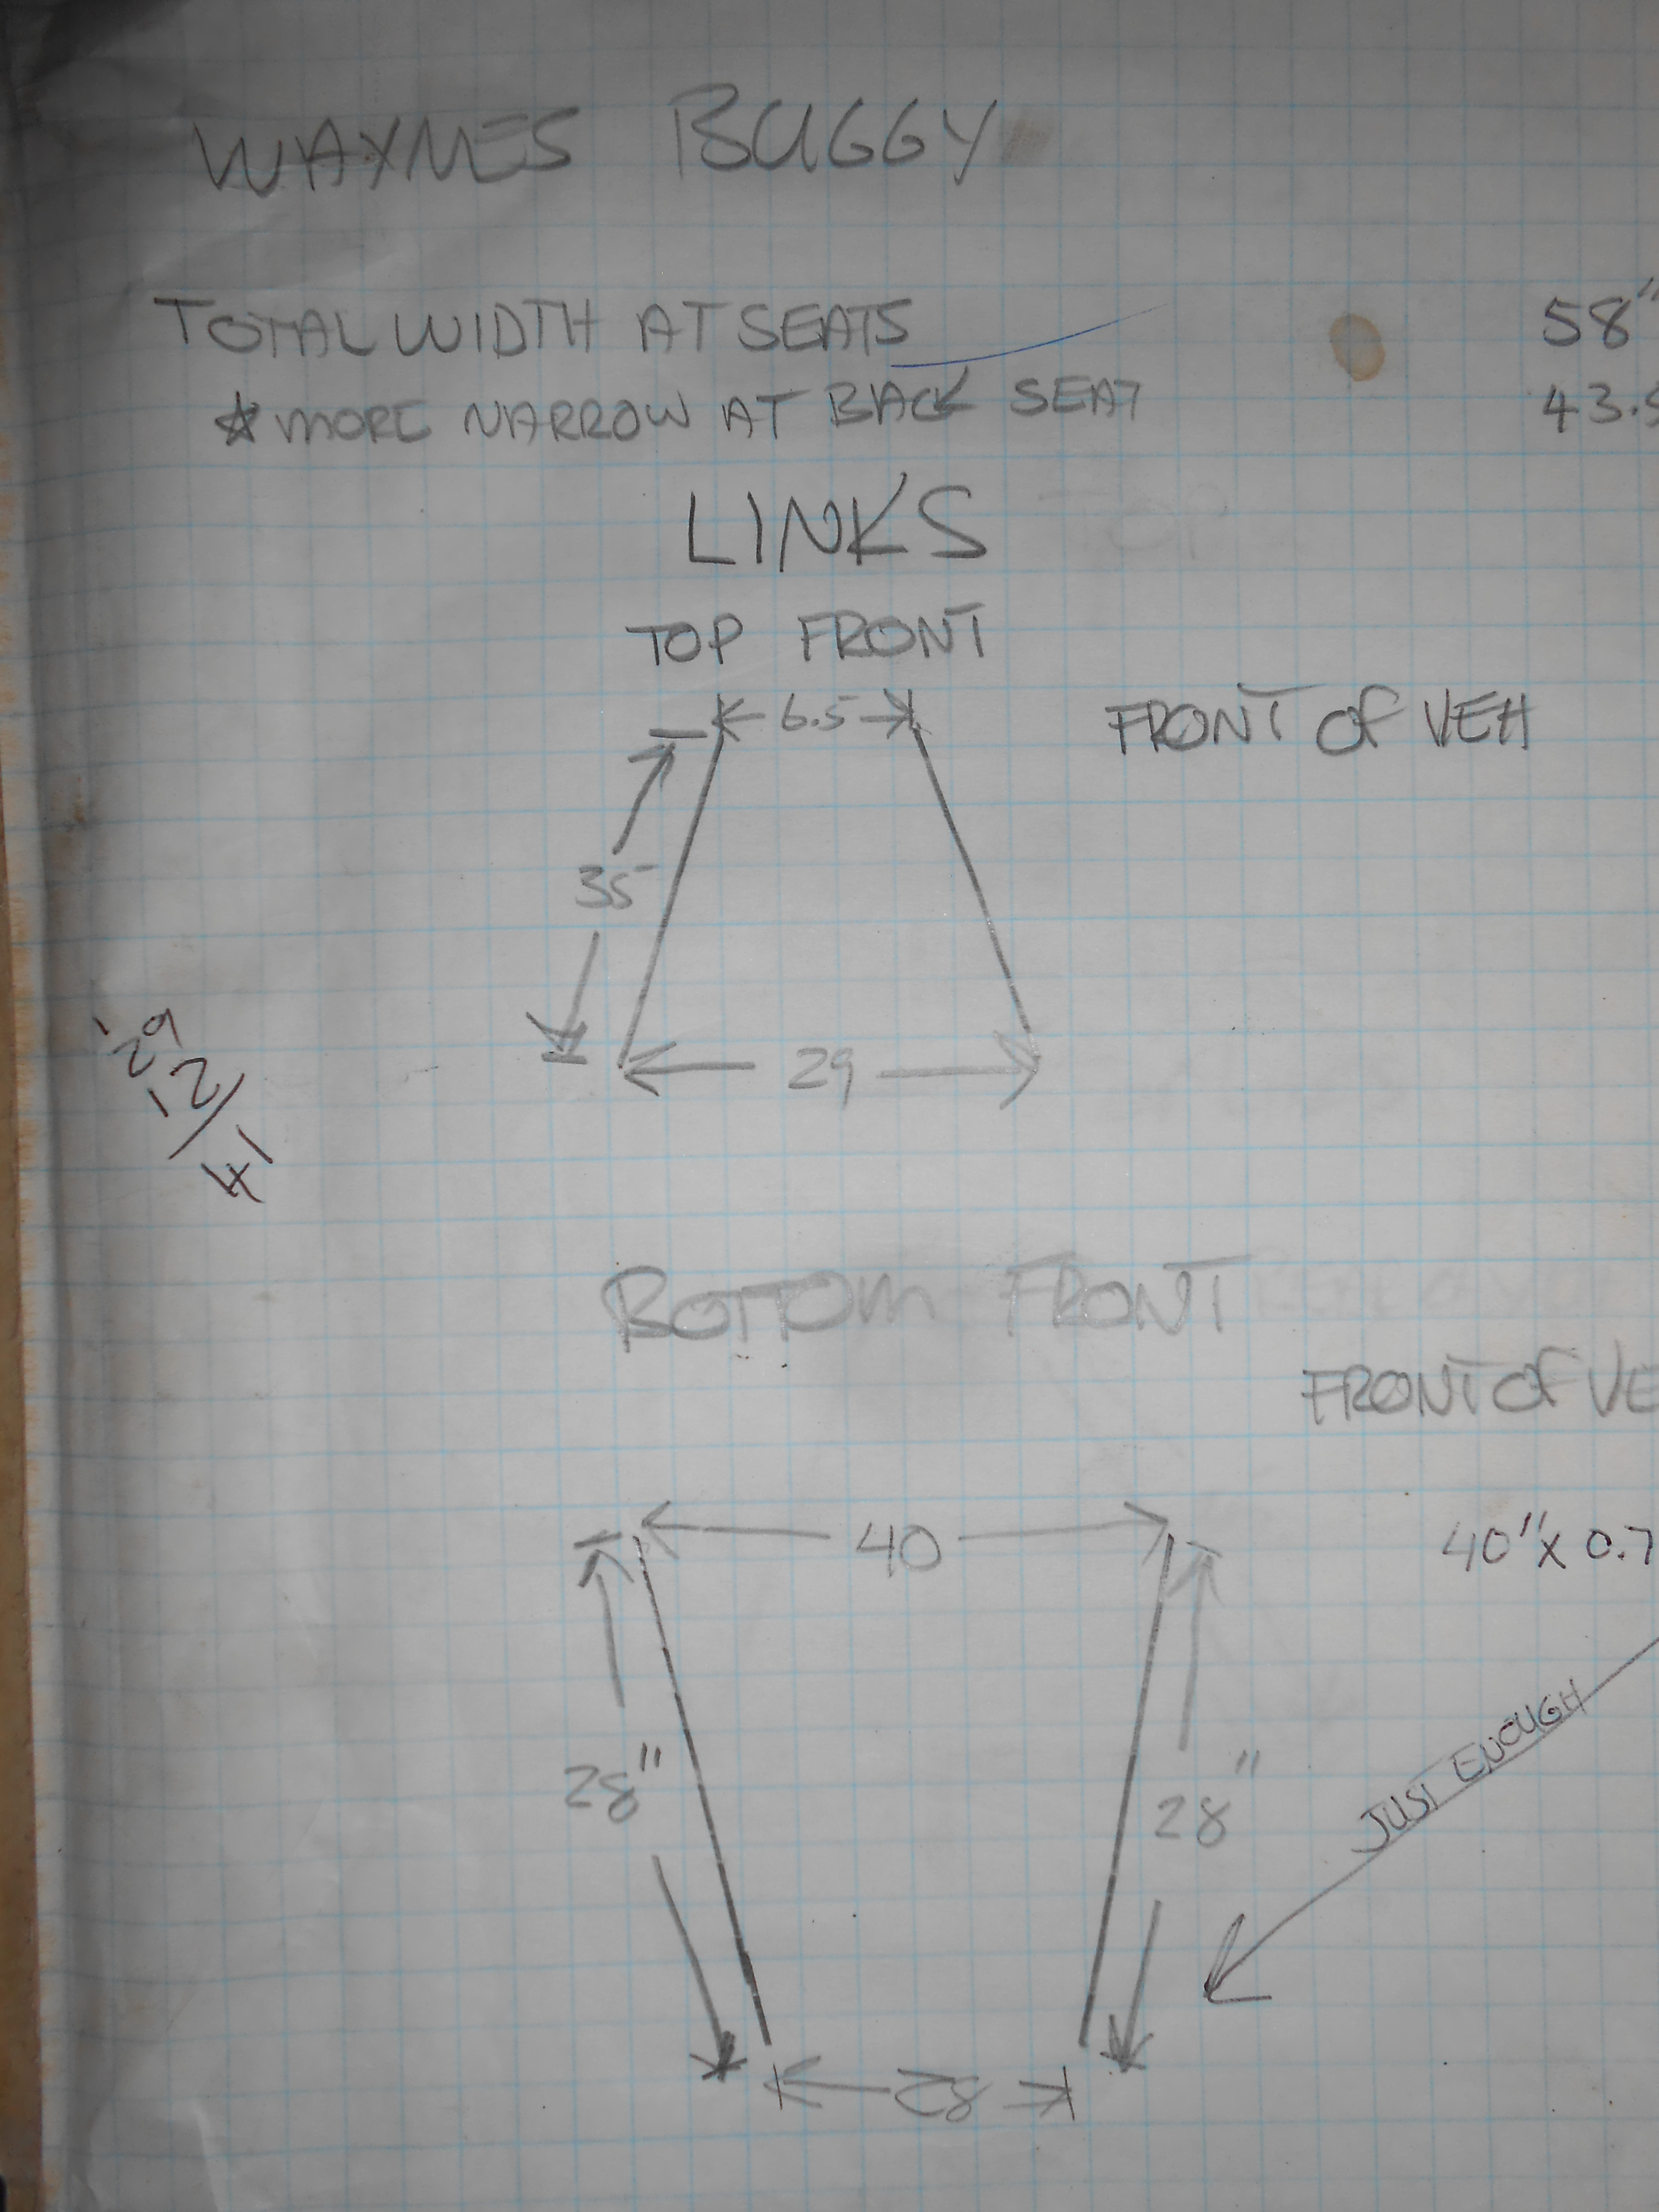 WAYNES BUGGY
TOTAL WIDTH AT SEATS 58"
* MORE NARROW AT BACK SEAT 43.5
LINKS TOP
TOP FRONT
6.5
FRONT OF VEH
35
29
1
29
12
41
BOTTOM FRONT
FRONT OF VE
40
40" X 0.7
28"
28"
JUST ENOUGH
28